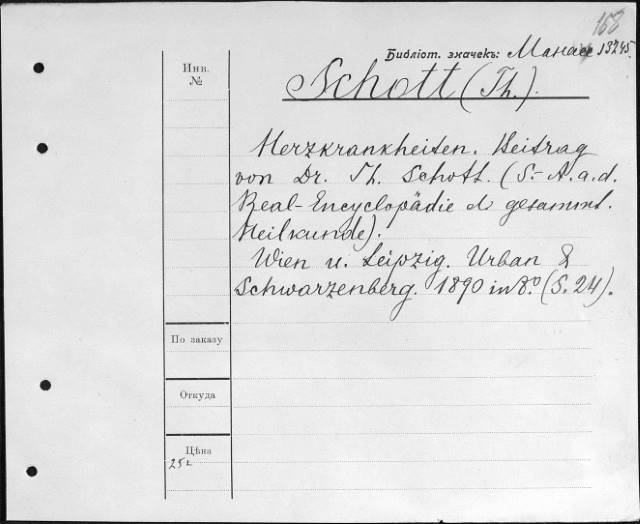 168
Библіот. значекъ: Манас 13245.
Инв.
№
Schott (Th.).
Herzkrankheiten. Beitrag
von Dr. Th. Schott. (S.-A. a. d.
Real-Encyclopädie d. gesammt.
Heilkunde).
Wien u. Leipzig. Urban &
Schwarzenberg. 1890 in 8.º (S. 24).
По заказу
Откуда
Цѣна